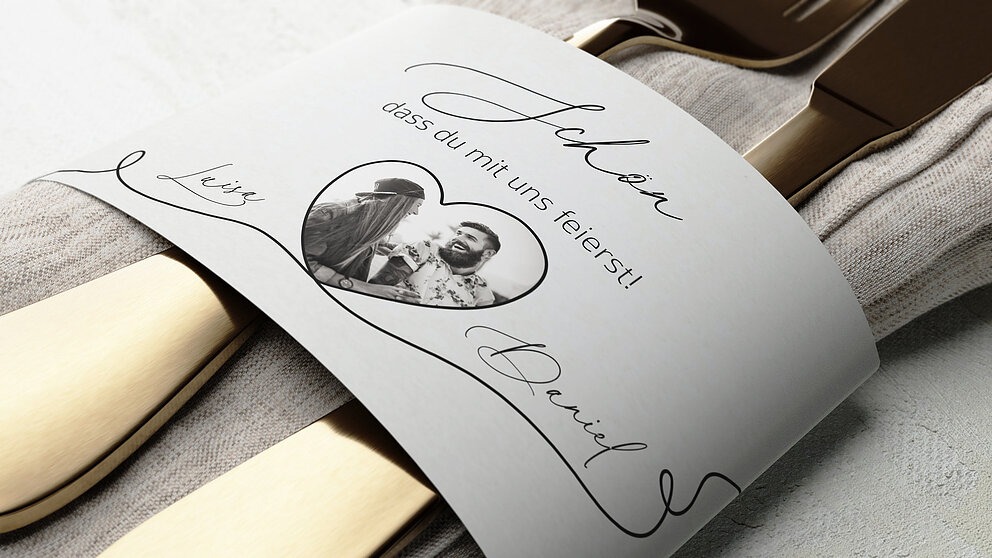 Schön
dass du mit uns feierst!
Luisa
Daniel